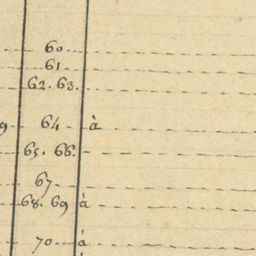 60
61
62. 63.
9 64 à
65. 66.
67
68. 69 à
70 à